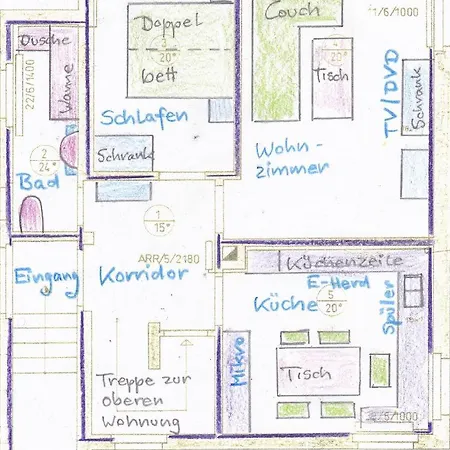 Couch
1/6/1000
Doppel
3
20°
bett
4
20°
Tisch
Dusche
Wanne
22/6/1400
TV/DVD
Schrank
Schlafen
Schrank
Wohn-
zimmer
2
24°
Bad
1
15°
ARR/5/2180
Eingang
Korridor
Küchenzeile
E-Herd
Küche
5
20°
Spüler
Mikro
Tisch
Treppe zur
oberen
Wohnung